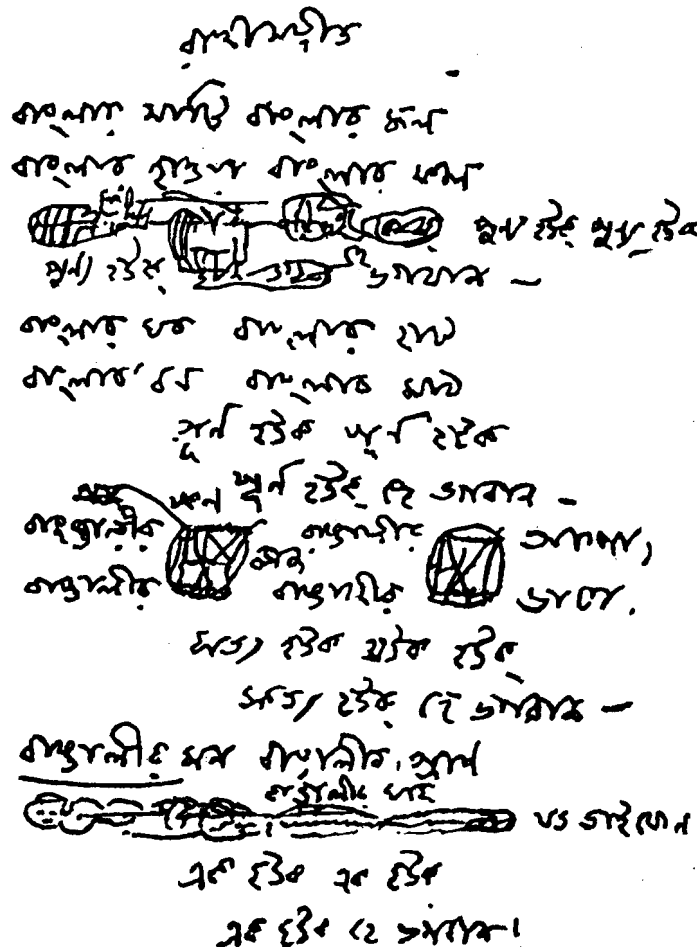 রাখীসঙ্গীত
বাংলার মাটি বাংলার জল
বাংলার হাওয়া বাংলার ফল
পুণ্য হউক পুণ্য হউক
পুণ্য হউক হে ভগবান —
বাংলার ঘর বাংলার হাট
বাংলার বন বাংলার মাঠ
পূর্ণ হউক পূর্ণ হউক
পূর্ণ হউক হে ভগবান —
বাঙালীর পণ বাঙালীর আশা,
বাঙালীর কাজ বাঙালীর ভাষা,
সত্য হউক সত্য হউক
সত্য হউক হে ভগবান —
বাঙালীর মন বাঙালীর প্রাণ
বাঙালীর ঘরে যত ভাইবোন
এক হউক এক হউক
এক হউক হে ভগবান।